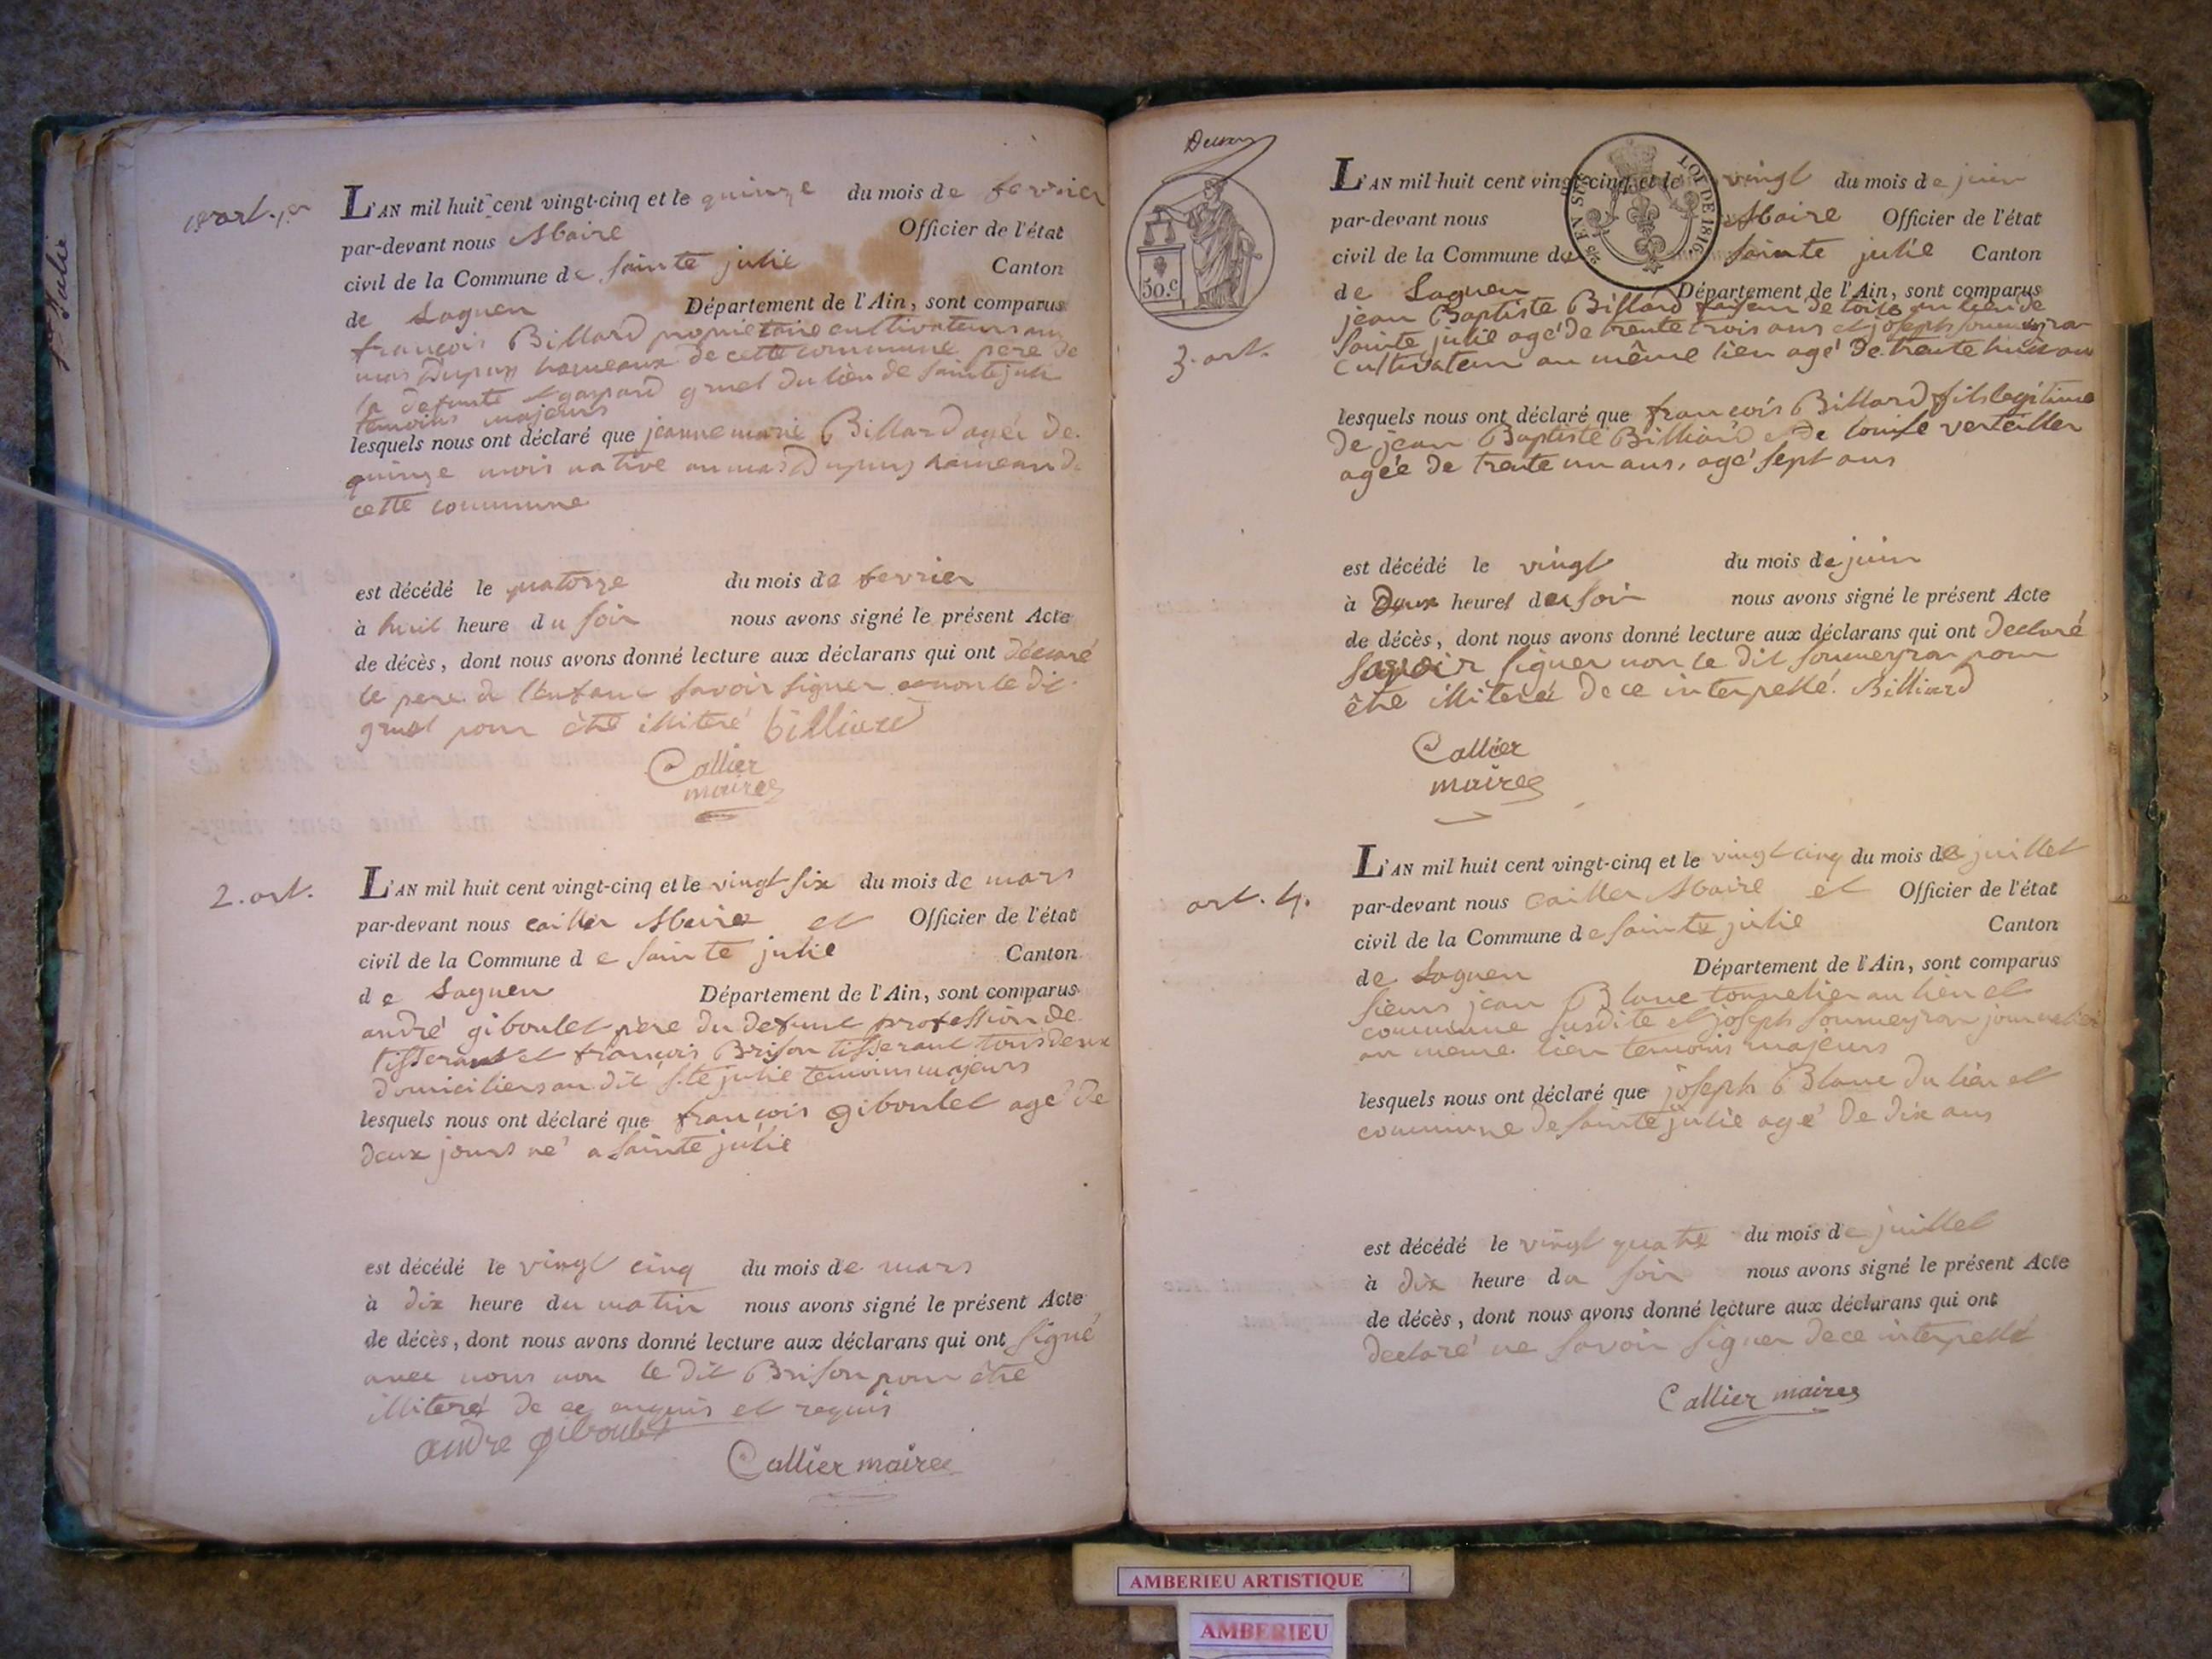 Ste Julie
art. 1er
L'AN mil huit cent vingt-cinq et le quinze du mois de fevrier
par-devant nous Maire Officier de l'état
civil de la Commune de Sainte julie Canton
de Lagneu Département de l'Ain, sont comparus
françois Billard proprietaire cultivateur au
mas Dupuy hameaux de cette commune pere de
la defunte et gaspard gruel du lieu de Sainte julie
temoins majeurs
lesquels nous ont déclaré que jeanne marie Billard agée de
quinze mois native au mas Dupuy hameau de
cette commune
est décédé le quatorze du mois de fevrier
à huit heure du soir nous avons signé le présent Acte
de décès, dont nous avons donné lecture aux déclarans qui ont déclaré
le pere de l'enfant savoir signer et non le dit
gruel pour être illiteré billiard
Callier
maire
2. art.
L'AN mil huit cent vingt-cinq et le vingt six du mois de mars
par-devant nous cailler Maire et Officier de l'état
civil de la Commune de Sainte julie Canton
de Lagneu Département de l'Ain, sont comparus
andré giboulet père du defunt profession de
tisserant et françois Brison tisserant tous deux
domiciliers au dit Ste julie temoins majeurs
lesquels nous ont déclaré que françois giboulet agé de
deux jours né a Sainte julie
est décédé le vingt cinq du mois de mars
à dix heure du matin nous avons signé le présent Acte
de décès, dont nous avons donné lecture aux déclarans qui ont signé
avec nous non le dit Brison pour être
illiteré de ce enquis et requis
andre giboulet
Callier maire
50.c
LOI DE 1816
3. art.
L'AN mil huit cent vingt-cinq et le vingt du mois de juin
par-devant nous Maire Officier de l'état
civil de la Commune de Sainte julie Canton
de Lagneu Département de l'Ain, sont comparus
jean Baptiste Billard faiseur de toile au lieu de
Sainte julie agé de trente trois ans et joseph soumeyran
cultivateur au même lieu agé de trente huit ans
lesquels nous ont déclaré que françois Billard fils legitime
de jean Baptiste Billiard et de louise verteiller
agée de trente un ans, agé sept ans
est décédé le vingt du mois de juin
à Deux heures du soir nous avons signé le présent Acte
de décès, dont nous avons donné lecture aux déclarans qui ont declaré
savoir signer non le dit soumeyran pour
être illiteré de ce interpellé. Billiard
Callier
maire
art. 4.
L'AN mil huit cent vingt-cinq et le vingt cinq du mois de juillet
par-devant nous Cailler Maire et Officier de l'état
civil de la Commune de Sainte julie Canton
de Lagneu Département de l'Ain, sont comparus
sieurs jean Blanc tonnelier au lieu et
commune susdite et joseph soumeyran journalier
au meme lieu temoins majeurs
lesquels nous ont déclaré que joseph Blanc du lieu et
commune de Sainte julie agé de dix ans
est décédé le vingt quatre du mois de juillet
à dix heure du soir nous avons signé le présent Acte
de décès, dont nous avons donné lecture aux déclarans qui ont
declaré ne savoir signer de ce interpellé
Callier maire
AMBERIEU ARTISTIQUE
AMBERIEU